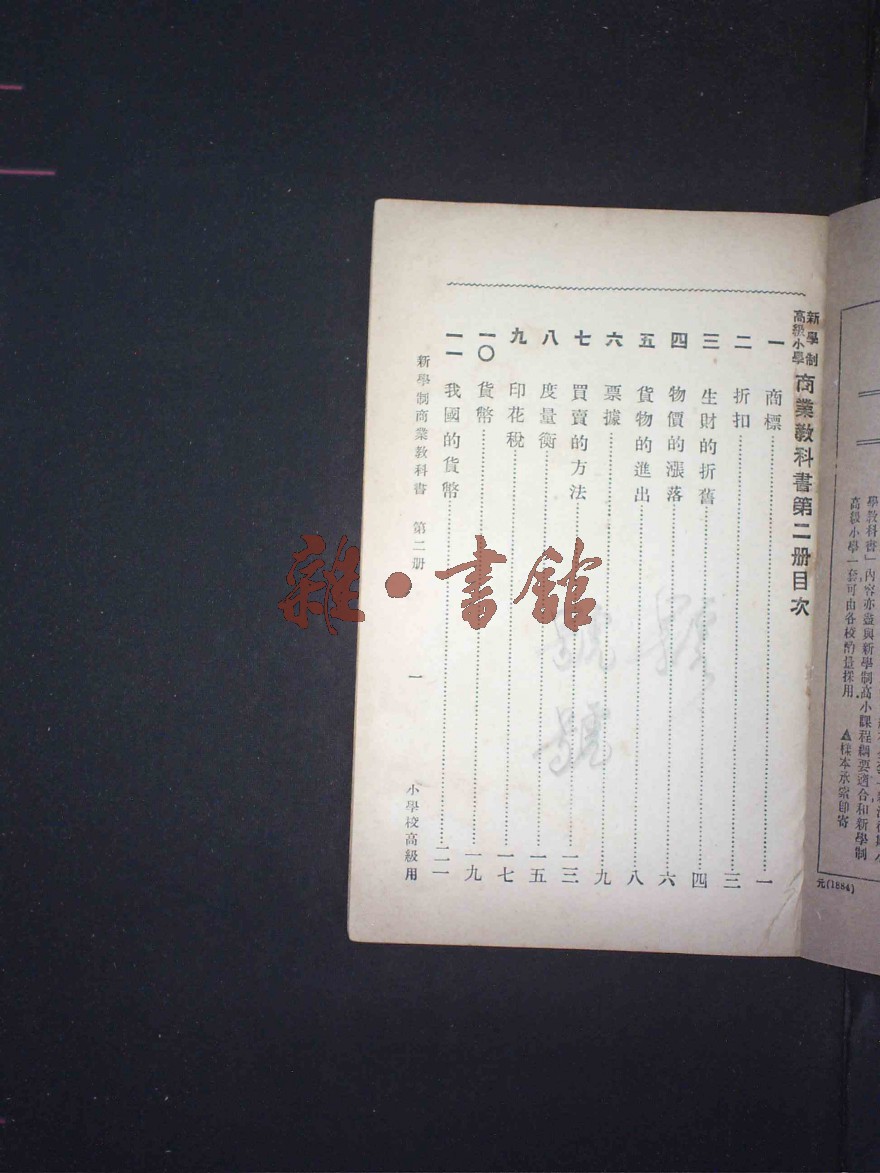 新學制
高級小學
商業教科書第二册目次
一 商標 一
二 折扣 三
三 生財的折舊 四
四 物價的漲落 六
五 貨物的進出 八
六 票據 九
七 買賣的方法 一三
八 度量衡 一五
九 印花稅 一七
一〇 貨幣 一九
一一 我國的貨幣 二一
新學制商業教科書 第二册 一 小學校高級用
雜·書館
學教科書」內容亦盡與新學制高小課程綱要適合和新學制
高級小學一套可由各校酌量採用 ▲樣本承索卽寄
元(1884)